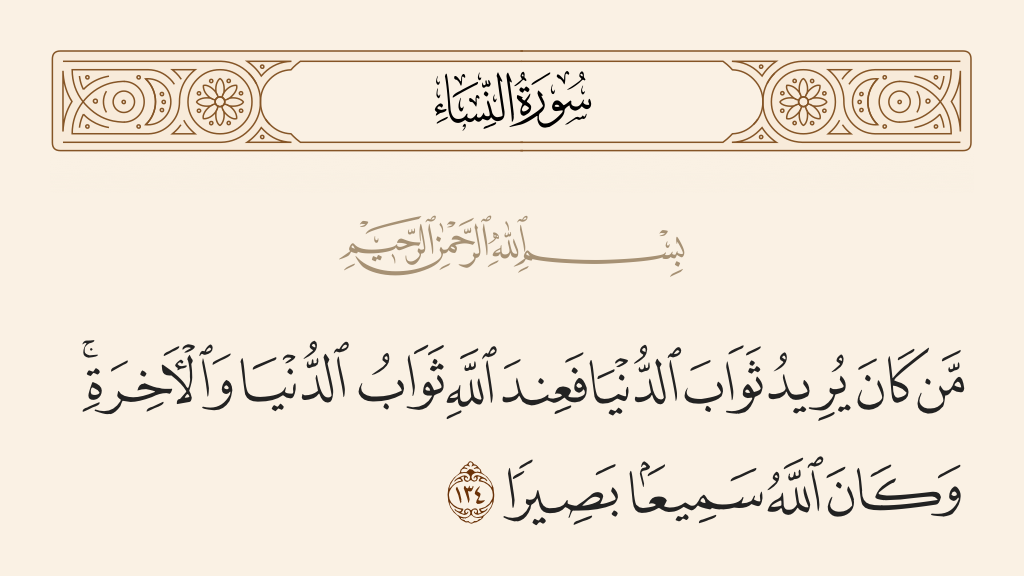 سُورَةُ النِّسَاءِ
بِسْمِ ٱللَّهِ ٱلرَّحْمَٰنِ ٱلرَّحِيمِ
مَّن كَانَ يُرِيدُ ثَوَابَ ٱلدُّنْيَا فَعِندَ ٱللَّهِ ثَوَابُ ٱلدُّنْيَا وَٱلْأَخِرَةِ ۚ
وَكَانَ ٱللَّهُ سَمِيعًۢا بَصِيرًا ١٣٤